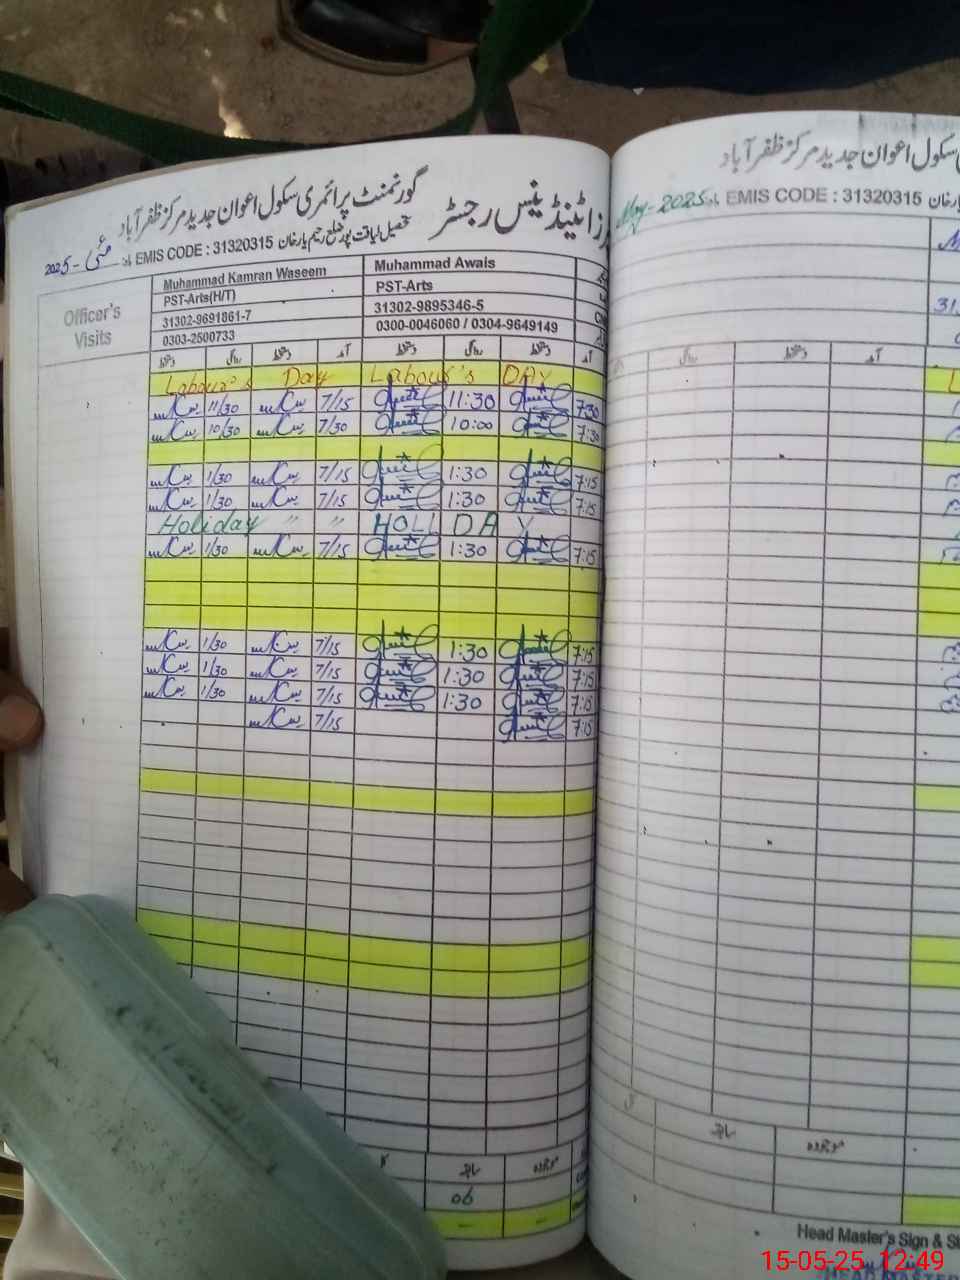 گورنمنٹ پرائمری سکول اعوان جدید مرکز ظفر آباد
ٹینڈینس رجسٹر
تحصیل لیاقت پور ضلع رحیم یار خان EMIS CODE : 31320315 ماہ مئی - 2025
Officer's Visits
Muhammad Kamran Waseem
PST-Arts(H/T)
31302-9691861-7
0303-2500733
Muhammad Awais
PST-Arts
31302-9895346-5
0300-0046060 / 0304-9649149
دستخط روانگی دستخط آمد دستخط روانگی دستخط آمد
Labour's Day Labour's DAY
11/30 7/15 11:30 7:30
10/30 7/30 10:00 7:30
1/30 7/15 1:30 7:15
1/30 7/15 1:30 7:15
Holiday " " HOLIDAY
1/30 7/15 1:30 7:15
1/30 7/15 1:30 7:15
1/30 7/15 1:30 7:15
1/30 7/15 1:30 7:15
7/15 7:15
سابقہ موجودہ
06
سکول اعوان جدید مرکز ظفر آباد
May-2025 ماہ EMIS CODE : 31320315
روانگی دستخط آمد
کل سابقہ موجودہ
Head Master's Sign & St
15-05-25 12:49